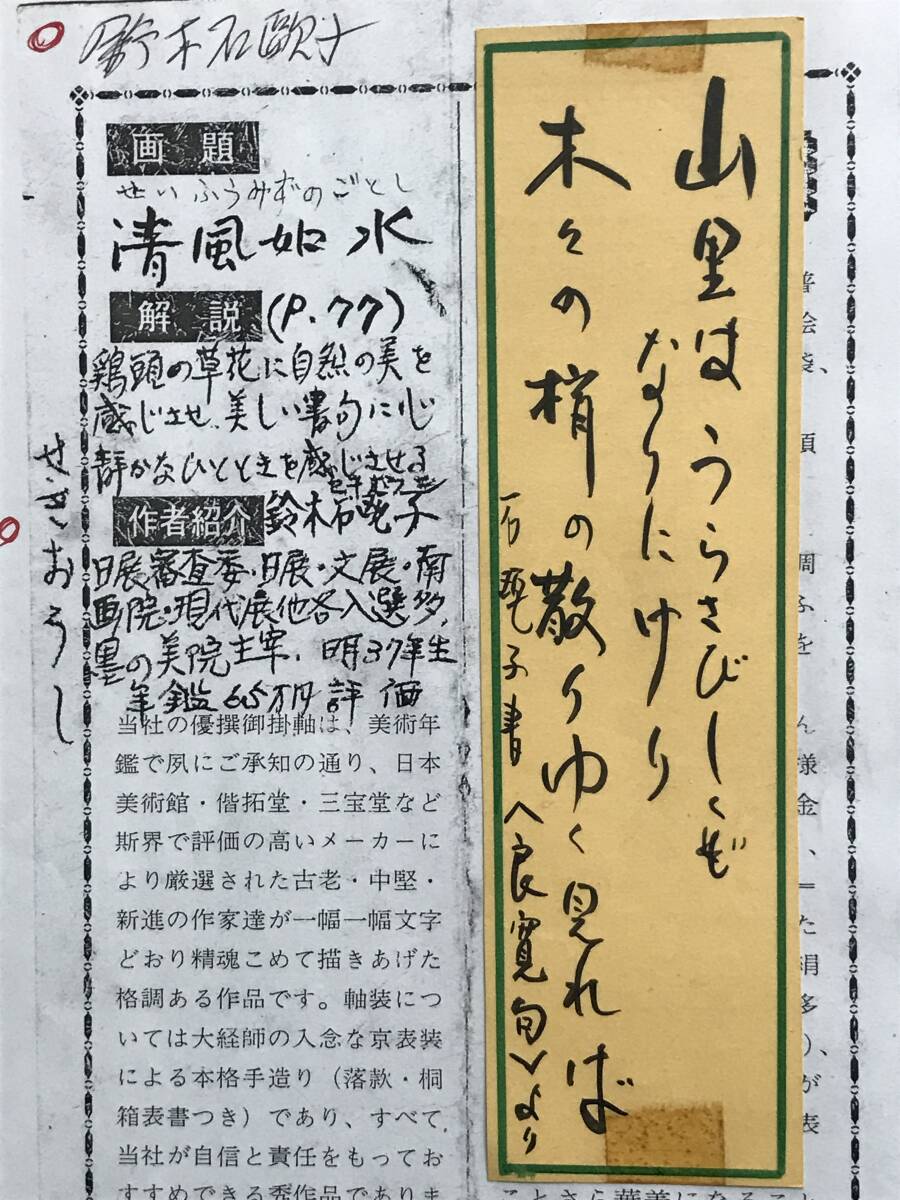 鈴木石
画題
せいふうみずのごとし
清風如水
解説 (P.77)
鶏頭の草花に自然の美を
感じさせ、美しい書句に心
静かなひとときを感じさせる
作者紹介 鈴木石子
日展審査委・日展・文展・南
画院・現代展他各入選多,
墨の美院主宰. 明37年生
年鑑65万円評価
当社の優撰御掛軸は、美術年
鑑で夙にご承知の通り、日本
美術館・偕拓堂・三宝堂など
斯界で評価の高いメーカーに
より厳選された古老・中堅・
新進の作家達が一幅一幅文字
どおり精魂こめて描きあげた
格調ある作品です。軸装につ
いては大経師の入念な京表装
による本格手造り(落款・桐
箱表書つき)であり、すべて
当社が自信と責任をもってお
すすめできる秀作でありま
山里はうらさびしくぞ
なりにけり
木々の梢の散りゆく見れば
石子書 <良寛句>より
ことさら華美になること